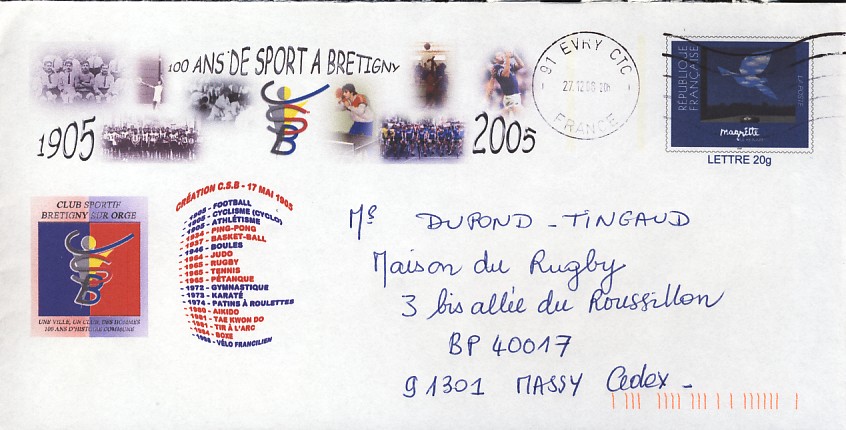 100 ANS DE SPORT A BRETIGNY
1905
2005
91 EVRY CTC
FRANCE
RÉPUBLIQUE
FRANÇAISE
LA POSTE
magritte
LETTRE 20g
CLUB SPORTIF
BRETIGNY SUR ORGE
UNE VILLE, UN CLUB, DES HOMMES
100 ANS D'HISTOIRE COMMUNE
CRÉATION C.S.B - 17 MAI 1905
1905 - FOOTBALL
1905 - CYCLISME (CYCLO)
1905 - ATHLÉTISME
1934 - PING-PONG
1937 - BASKET-BALL
1946 - BOULES
1964 - JUDO
1965 - RUGBY
1965 - TENNIS
1965 - PÉTANQUE
1972 - GYMNASTIQUE
1973 - KARATÉ
1974 - PATINS À ROULETTES
1980 - AIKIDO
1981 - TAE KWON DO
1981 - TIR À L'ARC
1984 - BOXE
1998 - VÉLO FRANCILIEN
Mrs DUPOND - TINGAUD
Maison du Rugby
3 bis allée du Roussillon
BP 40017
91301 MASSY Cedex -